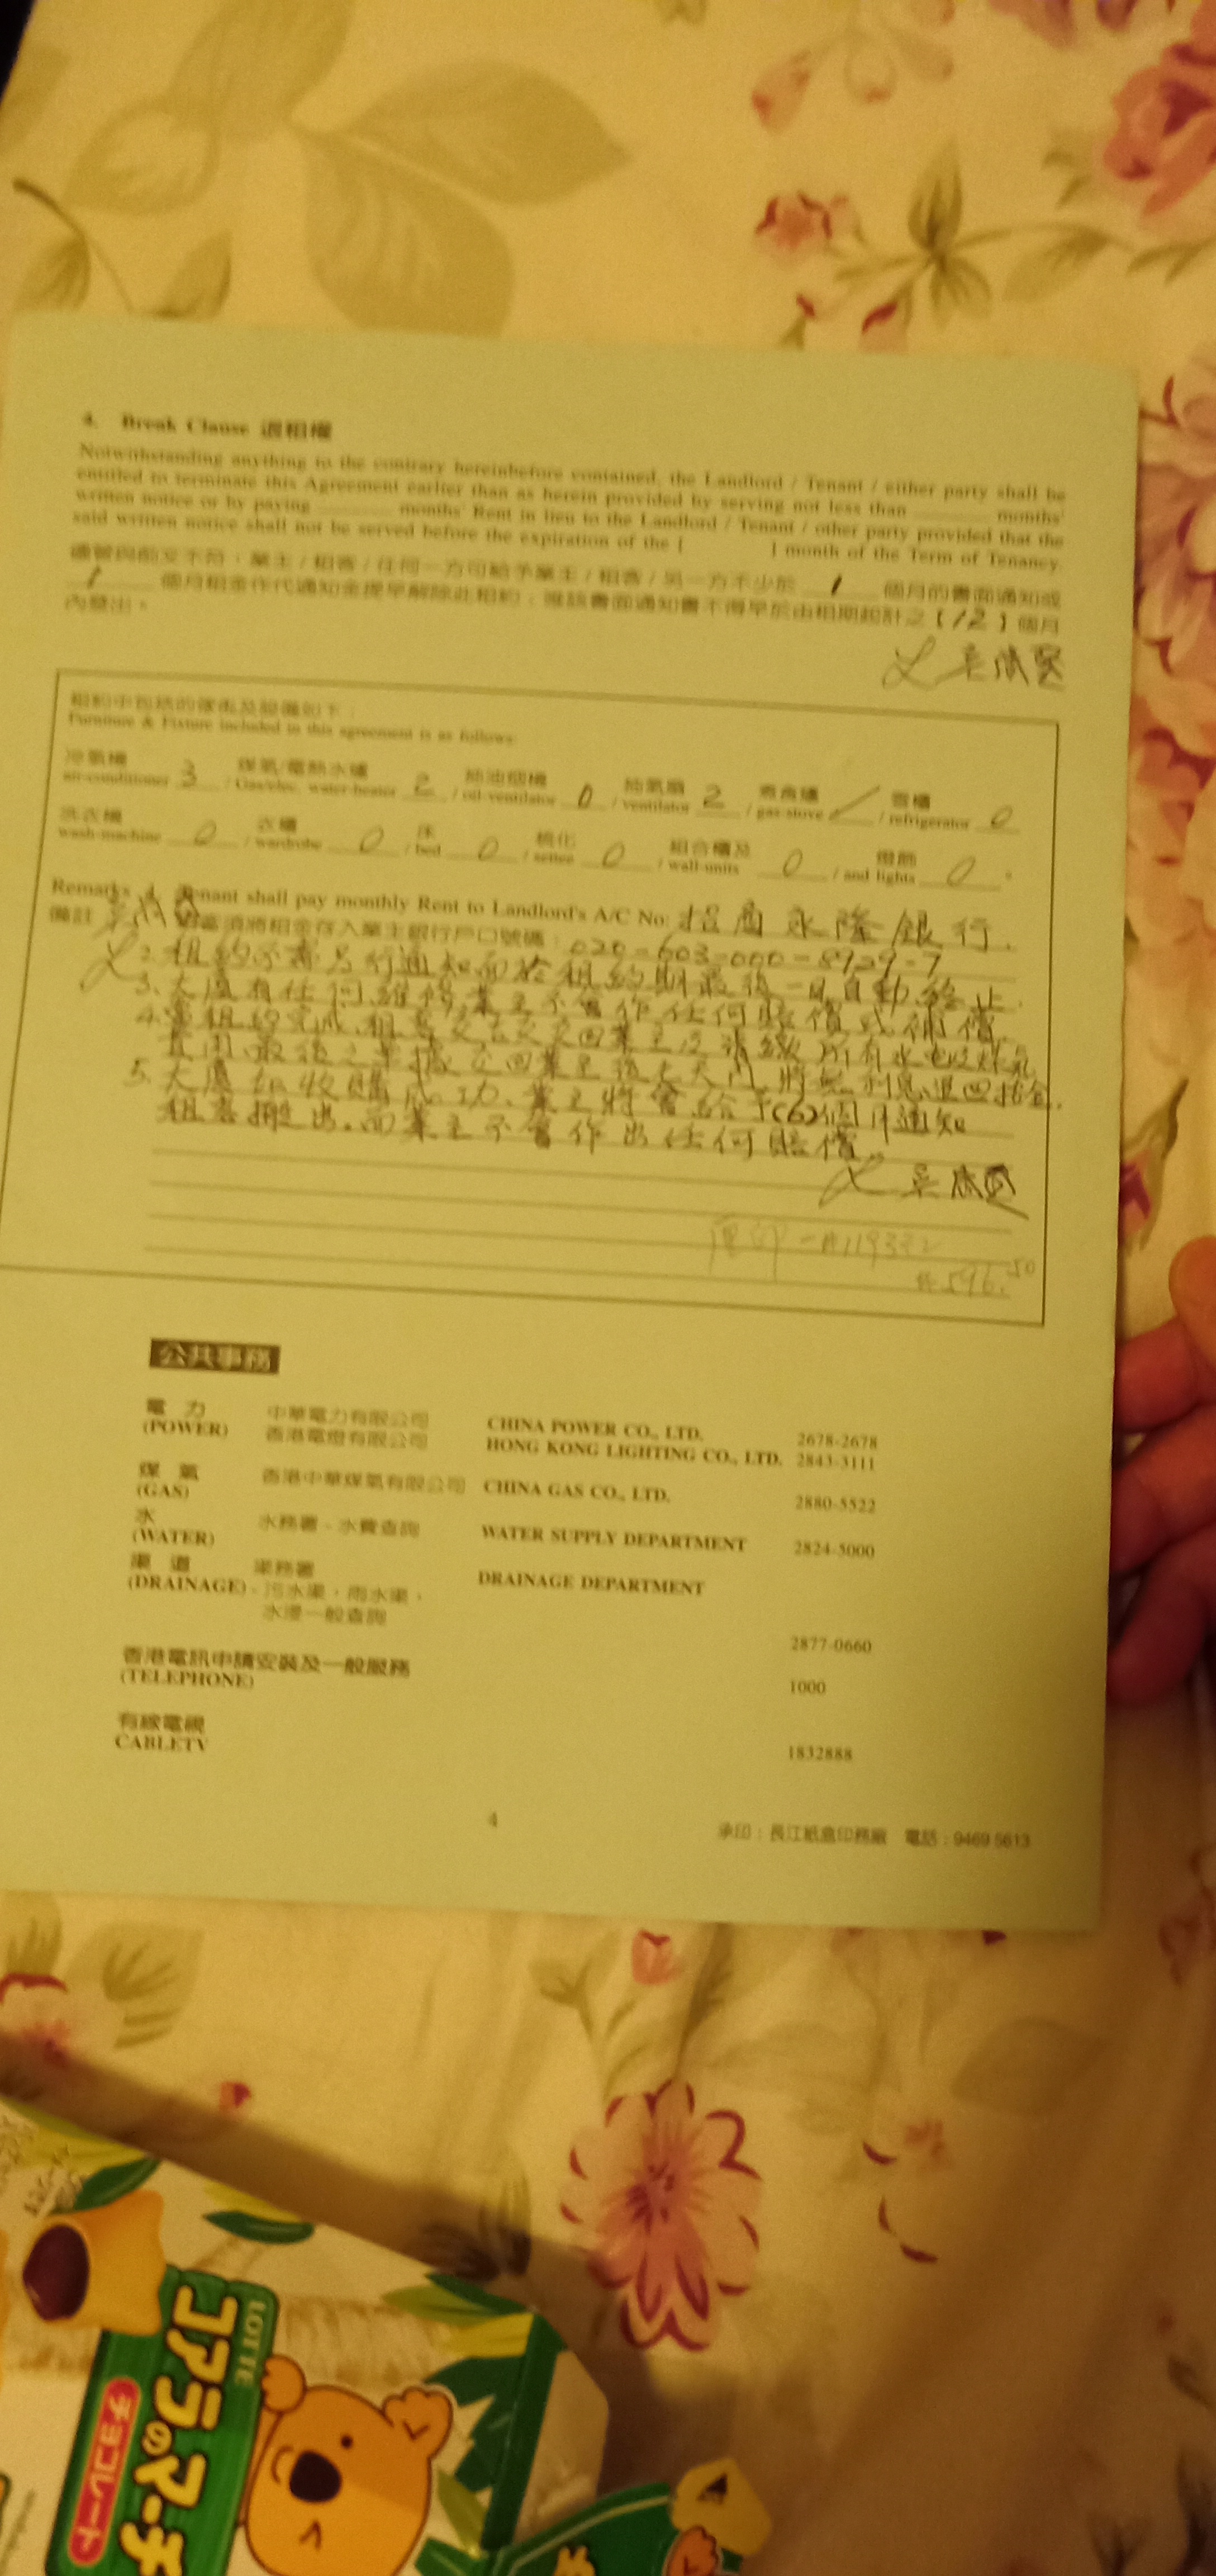 4. Break Clause 退租權
Notwithstanding anything to the contrary hereinbefore contained, the Landlord / Tenant / either party shall be
entitled to terminate this Agreement earlier than as herein provided by serving not less than ______ months'
written notice or by paying ______ months' Rent in lieu to the Landlord / Tenant / other party provided that the
said written notice shall not be served before the expiration of the [ ] month of the Term of Tenancy.
儘管與前文不符,業主 / 租客 / 任何一方可給予業主 / 租客 / 另一方不少於 1 個月的書面通知或
1 個月租金作代通知金提早解除此租約;唯該書面通知書不得早於由租期起計之 [12] 個月
內發出。
租約中包括的傢俬及設備如下:
Furniture & Fixture included in this agreement is as follows:
冷氣機 煤氣/電熱水爐 抽油煙機 抽氣扇 煮食爐 雪櫃
air-conditioner 3 / Gas/elec. water-heater 2 / oil-ventilator 0 / ventilator 2 / gas-stove / refrigerator 0
洗衣機 衣櫃 床 梳化 組合櫃及 燈飾
wash-machine 0 / wardrobe 0 / bed 0 / settee 0 / wall-units 0 / and lights 0 。
Remarks 1. Tenant shall pay monthly Rent to Landlord's A/C No: 招商永隆銀行.
備註 須將租金存入業主銀行戶口號碼: 020-603-000-8929-7
2. 租約不需另行通知而於租約期最後一日自動終止.
3. 大廈有任何維修業主不會作任何賠償或補償.
4. 當租約完成,租客交吉交回業主及清繳所有水電及煤氣
費用,最後之單據交回業主後七天內,將無利息退回按金.
5. 大廈如收購成功,業主將會給予(6)個月通知
租客搬出。而業主不會作出任何賠償。
公共事務
電 力 中華電力有限公司 CHINA POWER CO., LTD. 2678-2678
(POWER) 香港電燈有限公司 HONG KONG LIGHTING CO., LTD. 2843-3111
煤 氣 香港中華煤氣有限公司 CHINA GAS CO., LTD. 2880-5522
(GAS)
水 水務署 - 水費查詢 WATER SUPPLY DEPARTMENT 2824-5000
(WATER)
渠 道 渠務署 DRAINAGE DEPARTMENT
(DRAINAGE) - 污水渠,雨水渠,
水浸一般查詢 2877-0660
香港電訊申請安裝及一般服務 1000
(TELEPHONE)
有線電視
CABLETV 1832888
4
承印:長江紙盒印務廠 電話:9469 5613
LOTTE
コアラのマーチ
チョコレート